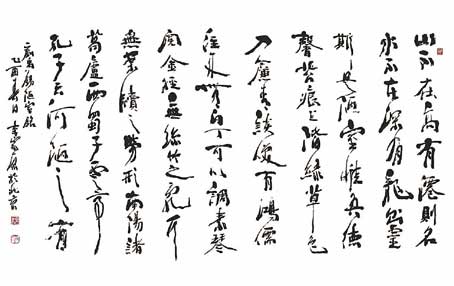 山不在高有僊則名
水不在深有龍則靈
斯是陋室惟吾德
馨苔痕上階綠草色
入簾青談笑有鴻儒
往來無白丁可以調素琴
閱金經無絲竹之亂耳
無案牘之勞形南陽諸
葛廬西蜀子雲亭
孔子云何陋之有
劉禹錫陋室銘
乙酉春日李於北京